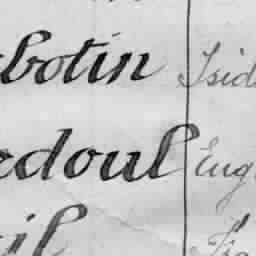 botin Isid
doul Eug
il